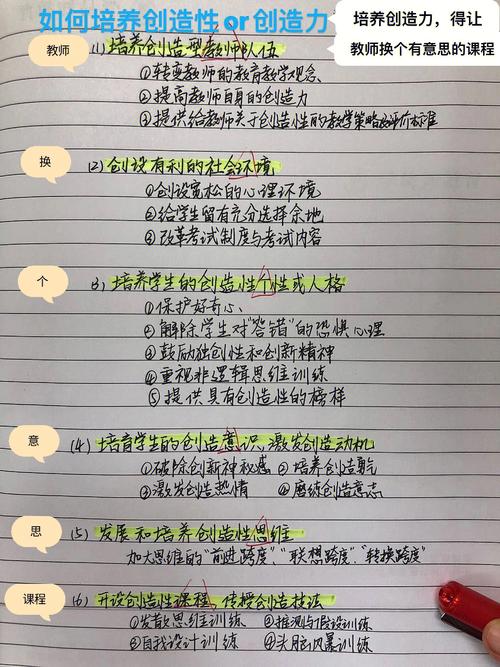 如何培养创造性 or 创造力
培养创造力,得让
教师换个有意思的课程
教师
(1) 培养创造型教师队伍
①转变教师的教育教学观念、
②提高教师自身的创造力
③提供给教师关于创造性的教学策略及评价标准
换
(2) 创设有利的社会环境
①创设宽松的心理环境
②给学生留有充分选择余地
③改革考试制度与考试内容
个
(3) 培养学生的创造性个性或人格
①保护好奇心、
②解除学生对"答错"的恐惧心理
③鼓励独创性和创新精神
④重视非逻辑思维训练
⑤提供具有创造性的榜样
意
(4) 培育学生的创造意识,激发创造动机
①破除创新神秘感 ②培养创造勇气
③激发创造热情 ④磨练创造意志
思
(5) 发展和培养创造性思维
加大思维的"前进跨度"、"联想跨度"、"转换跨度"
课程
(6) 开设创造性课程,传授创造技法
①发散思维训练 ②推测与假设训练
③自我设计训练 ④头脑风暴训练